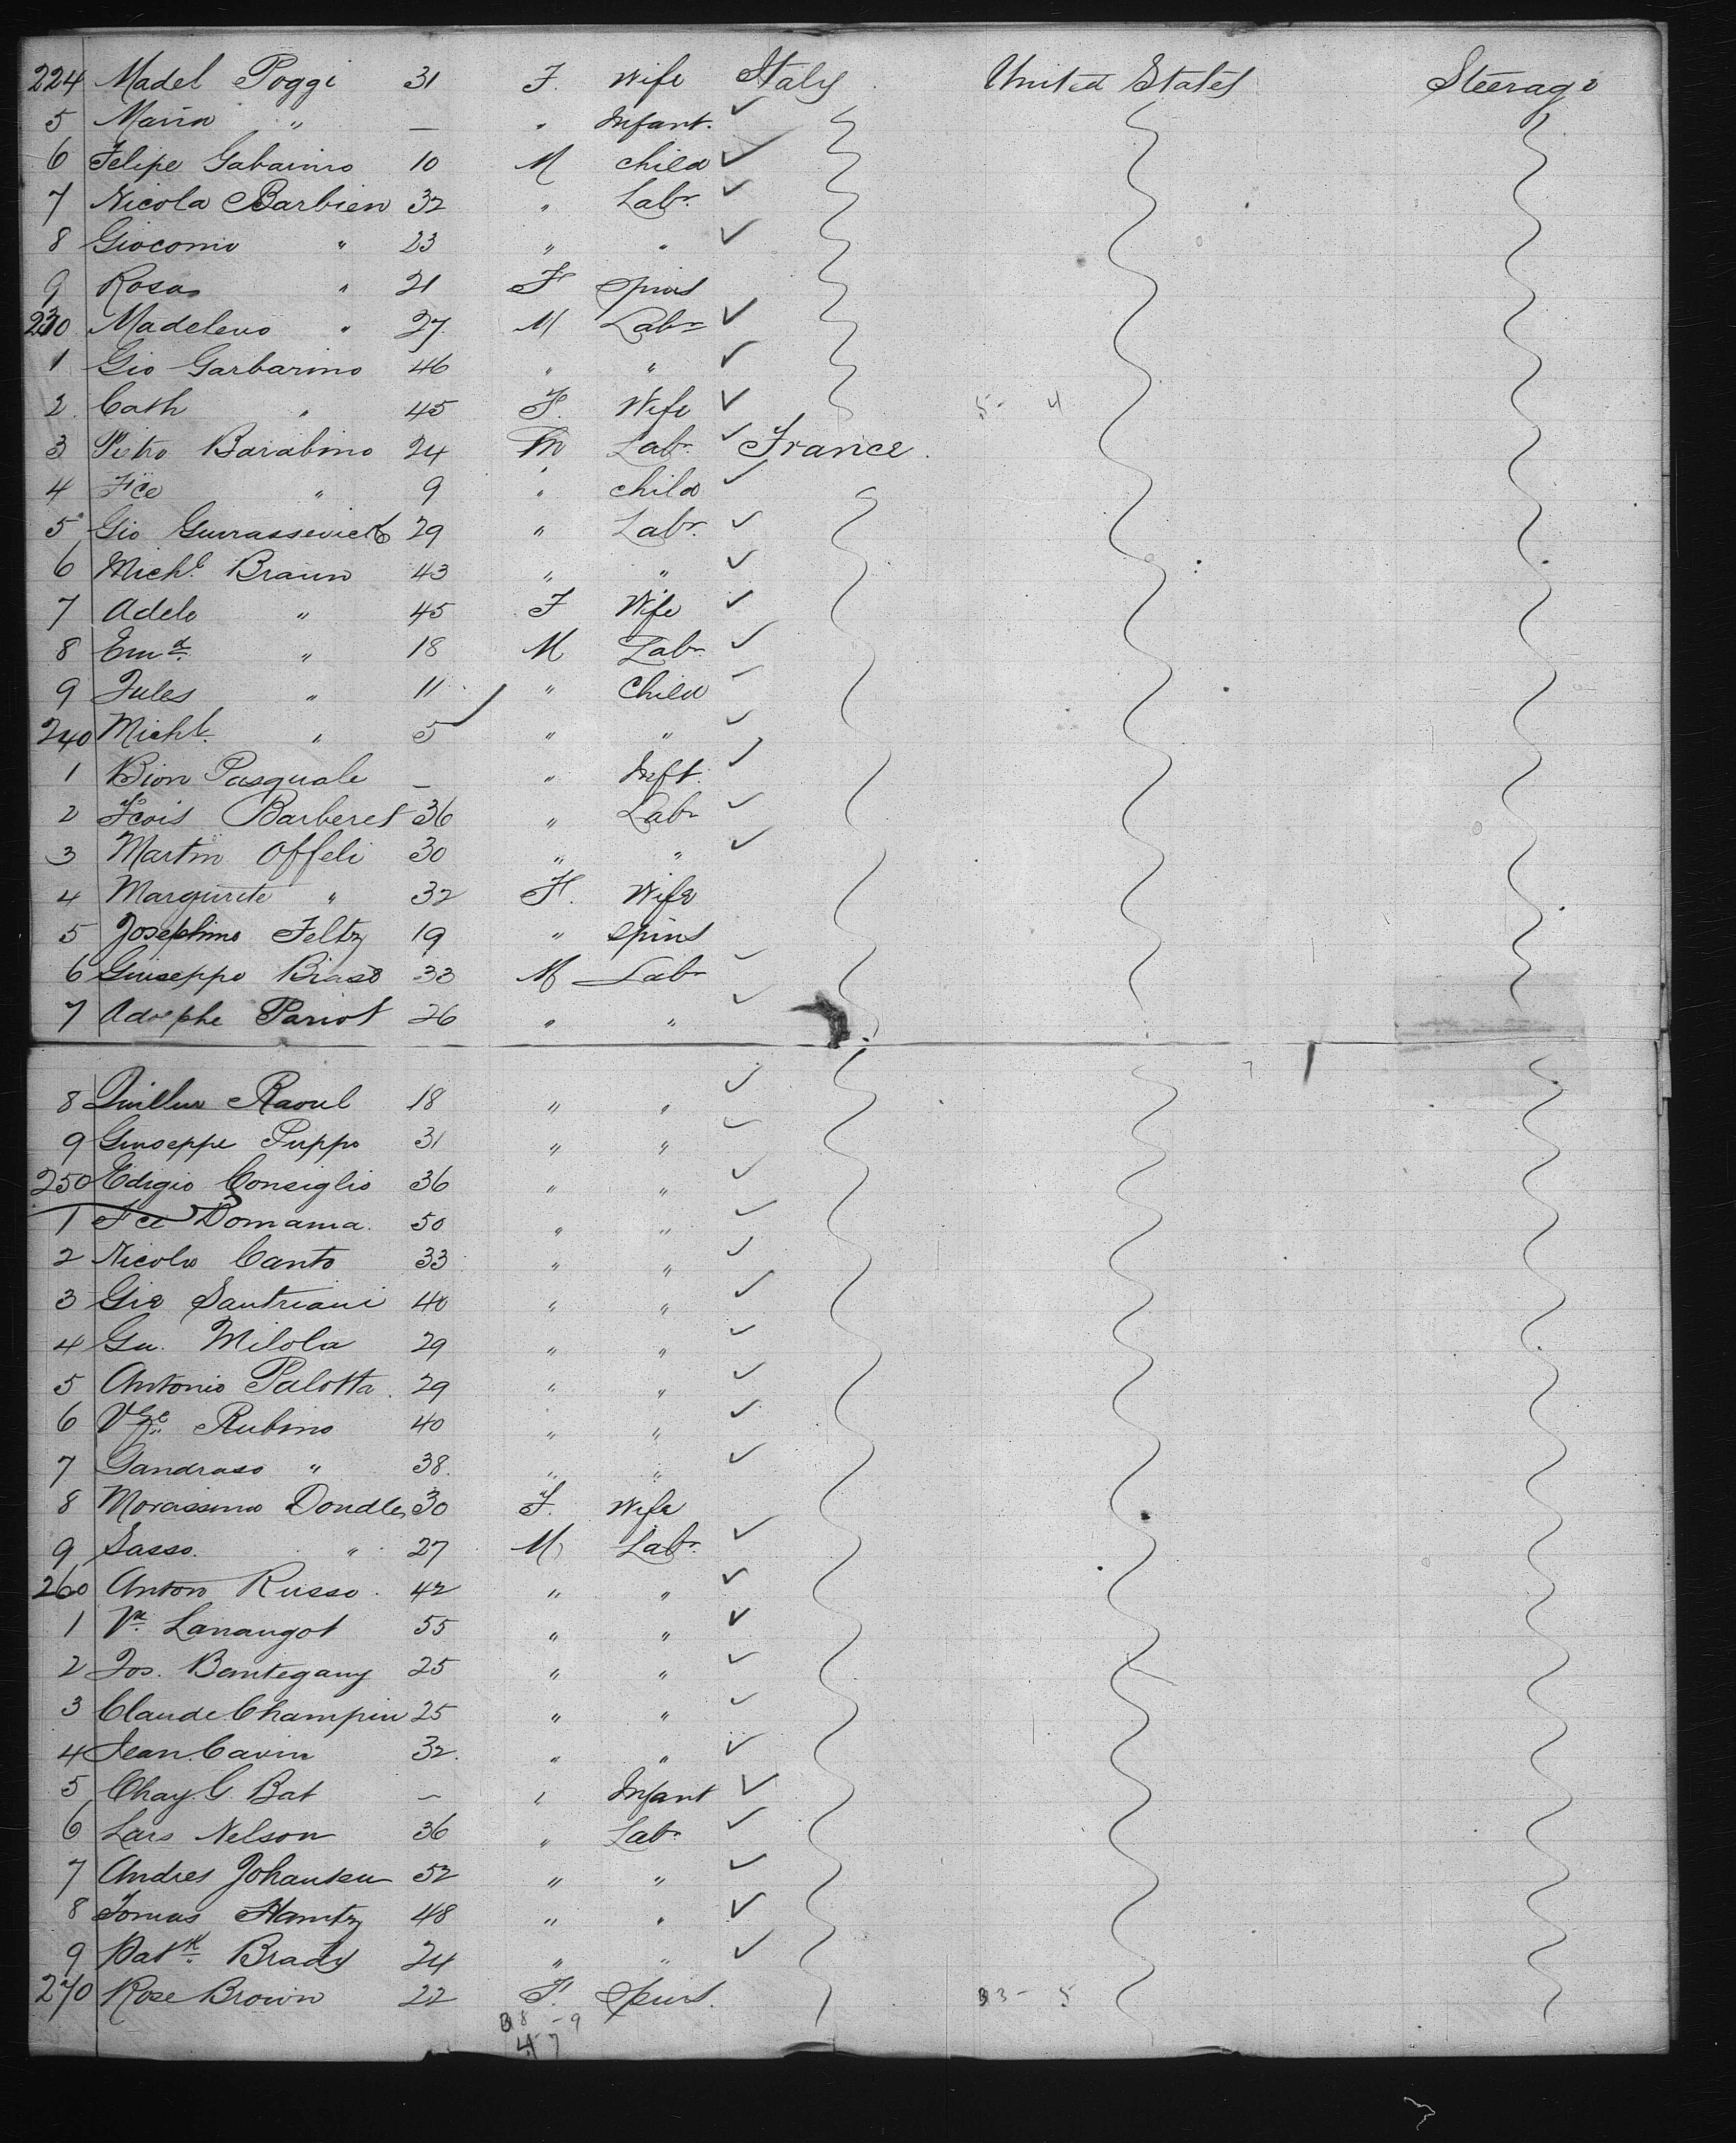 224 Madel Poggi 31 F. Wife Italy United States Steerage
5 Maria " — " Infant.
6 Felipe Gabarino 10 M child
7 Nicola Barbien 32 " Labr.
8 Giocomo " 23 " "
9 Rosa " 21 F Spins
230 Madeleno " 27 M Labr
1 Gio Garbarino 46 " "
2 Cath " 45 F. Wife 5- 4
3 Pietro Barabino 24 M Labr. France.
4 Fce " 9 " child
5 Gio 29 " Labr.
6 Michl. Braun 43 " "
7 Adele " 45 F Wife
8 Emd. " 18 M Labr.
9 Jules " 11 " Child
240 Michl. " 5 " "
1 Bion Pasquale — " Inft.
2 Fcois Barberet 36 " Labr
3 Martin Offeli 30 " "
4 Margurite " 32 F. Wife
5 Josephine Feltz 19 " Spins
6 Guiseppe Biaso 33 M Labr
7 Adolphe Pariot 26 " "
8 Raoul 18 " "
9 Guiseppe Puppo 31 " "
250 Edigio Consiglio 36 " "
1 Fce Domama. 50 " "
2 Nicola Canto 33 " "
3 Gio Santriani 40 " "
4 Gu. Milola 29 " "
5 Antonio Palotta. 29 " "
6 Rubino 40 " "
7 Gandraso " 38. " "
8 Dondle 30 F. Wife
9 Sasso. " 27 M Labr.
260 Anton Russo. 42 " "
1 Lanaugot 55 " "
2 Jos. Bentegany 25 " "
3 Claude Champin 25 " "
4 Jean Cavin 32. " "
5 Chay. G. Bat — " Infant
6 Lars Nelson 36 " Labr
7 Andres Johansen 52 " "
8 Tomas Hamtz 48 " "
9 Patk. Brady 24 " "
270 Rose Brown 22 F. Spins. 33- 5
38 -9
47